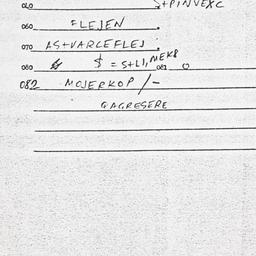 040 S+PINVEXC
060 FLEJEN
070 AS+VARCEFLEJ
080 $ = S+LI, MEKB 081 0
082 MOJERKOP /-
GAGRESERE